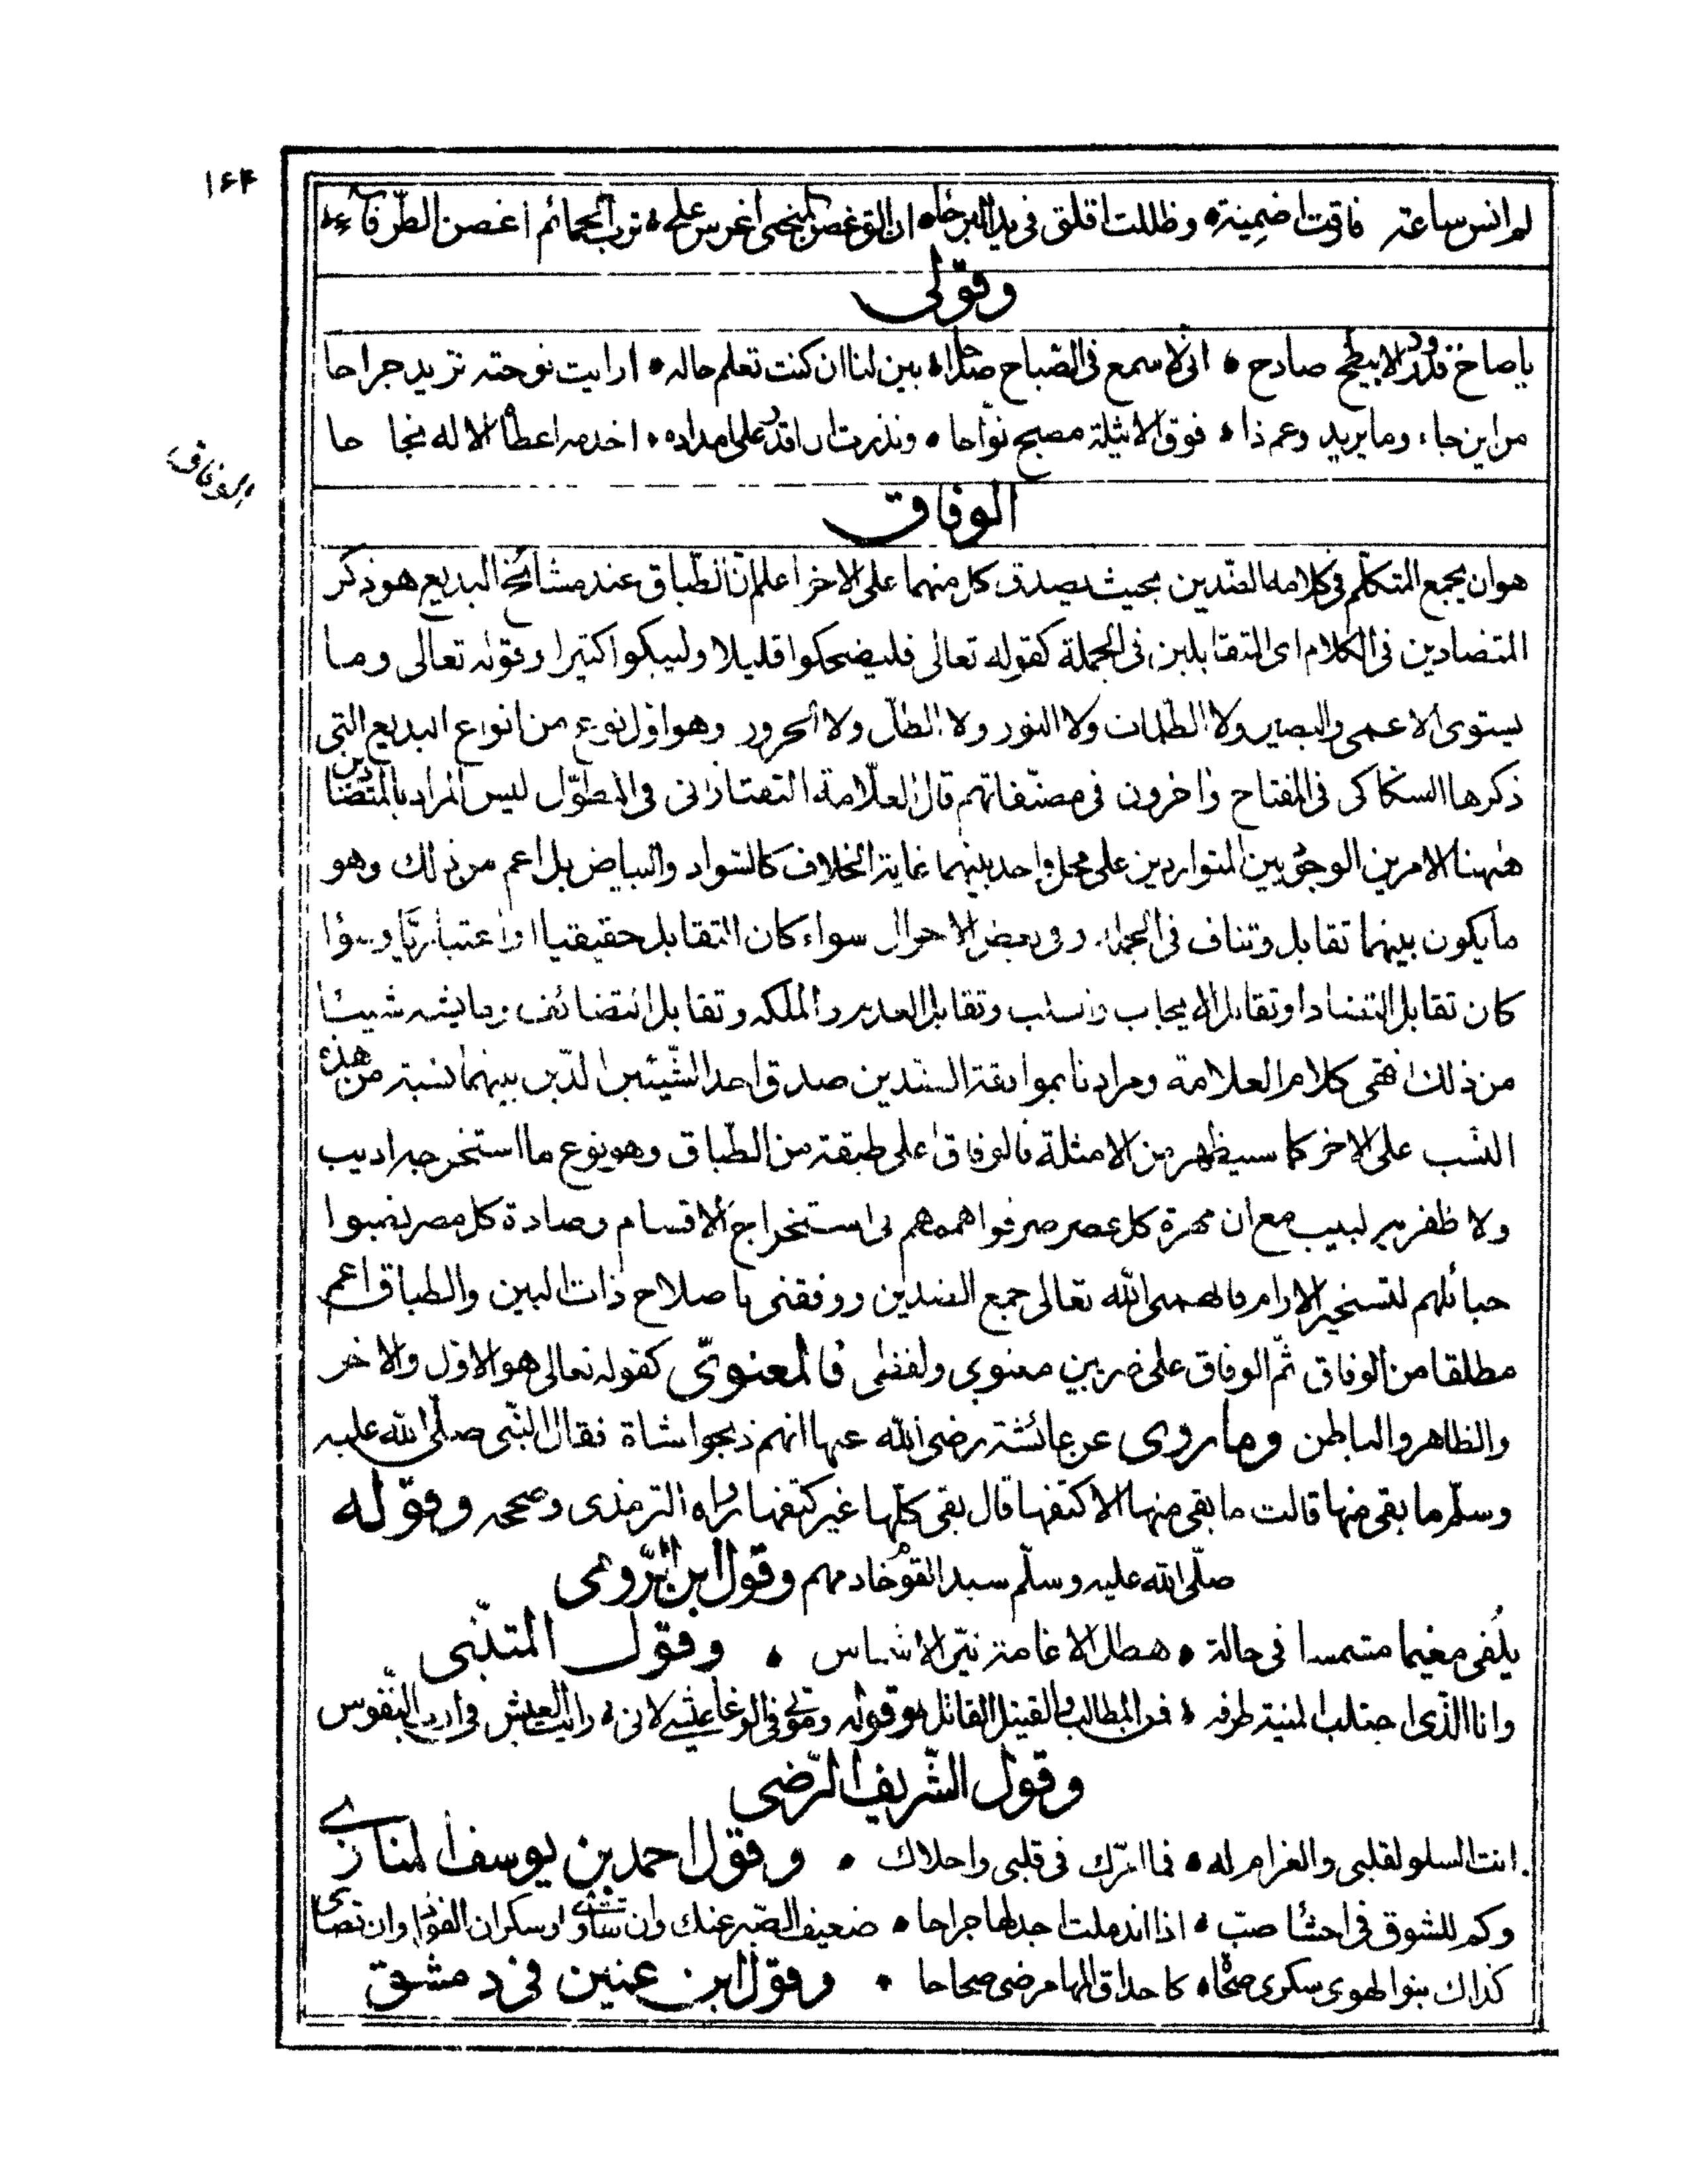 ١٦٤
لم انس ساعة فاقوت اضمينة وظللت اقلق فى يد البرحاء ان القو غصن اغرس على ترب الحمائم اغصن الطرفاء
وقولى
يا صاح الابيطح صادح انى لاسمع فى الصباح بين لنا ان كنت تعلم حاله ارايت نوحته تزيد جراحا
من اين جاء وما يريد وعم ذا فوق الاثيلة مصبح نوّاحا ونذرت ان اقدر على امداده اخدمه اعطا الاله نجاحا
الوفاق
الوفاق
هو ان يجمع المتكلّم فى كلامه الضّدين بحيث يصدق كل منهما على الاخر اعلم انّ الطّباق عند مشائخ البديع هو ذكر
المتضادين فى الكلام اى المتقابلين فى الجملة كقوله تعالى فليضحكوا قليلا وليبكوا كثيرا وقوله تعالى وما
يستوى الاعمى والبصير ولا الظلمات ولا النور ولا الظلّ ولا الحرور وهو اوّل نوع من انواع البديع التى
ذكرها السكاكى فى المفتاح واخرون فى مصنّفاتهم قال العلّامة التفتازانى فى المطوّل ليس المراد بالمتضادين
ههنا الامرين الوجوديين المتواردين على محل واحد بينهما غاية الخلاف كالسّواد والبياض بل اعم من ذلك وهو
ما يكون بينهما تقابل وتناف فى الجملة وفى بعض الاحوال سواء كان التقابل حقيقيا او اعتباريّا وسواء
كان تقابل التضاد او تقابل الايجاب والسلب وتقابل العدم والملكه وتقابل التضائف وما يشبه شيئا
من ذلك انتهى كلام العلامة ومرادنا بموافقة الضدين صدق احد الشّيئين الذين بينهما نسبة من هذه
النسب على الاخر كما سيظهر من الامثلة فالوفاق اعلى طبقة من الطّباق وهو نوع ما استخرجه اديب
ولا ظفر به لبيب مع ان مهرة كل عصر صرفوا هممهم فى استخراج الاقسام وصادة كل مصر نصبوا
حبائلهم لتسخير الارام فالهمنى الله تعالى جمع الضدين ووفقنى باصلاح ذات البين والطباق اعم
مطلقا من الوفاق ثمّ الوفاق على ضربين معنوى ولفظى فالمعنوىّ كقوله تعالى هو الاوّل والاخر
والظاهر والباطن وما روى عن عائشة رضى الله عنها انهم ذبحوا شاة فقال النّبى صلّى الله عليه
وسلّم ما بقى منها قالت ما بقى منها الا كتفها قال بقى كلّها غير كتفها رواه الترمذى وصححه وقوله
صلّى الله عليه وسلّم سيد القوم خادمهم وقول ابن الرّومى
يلفى مغيما مشمسا فى حالة هطل الاغامة نيّر الاشماس وقول المتنبّى
وانا الّذى اجتلب المنية طرفه فمن المطالب والقتيل القاتل وقوله وقتلى فى الوغا عيشى لانى رايت العيش فى ارب النّفوس
وقول الشّريف الرّضى
انت السلو لقلبى والغرام له فما امرّك فى قلبى واحلاك وقول احمد بن يوسف المنازى
وكم للشوق فى احشا صبّ اذا اندملت اجد لها جراحا ضعيف الصّبر عنك وان تقاوى وسكران الفؤاد وان تصاحى
كذاك بنو الهوى سكرى صحاة كاحداق المها مرضى صحاحا وقول ابن عنين فى دمشق